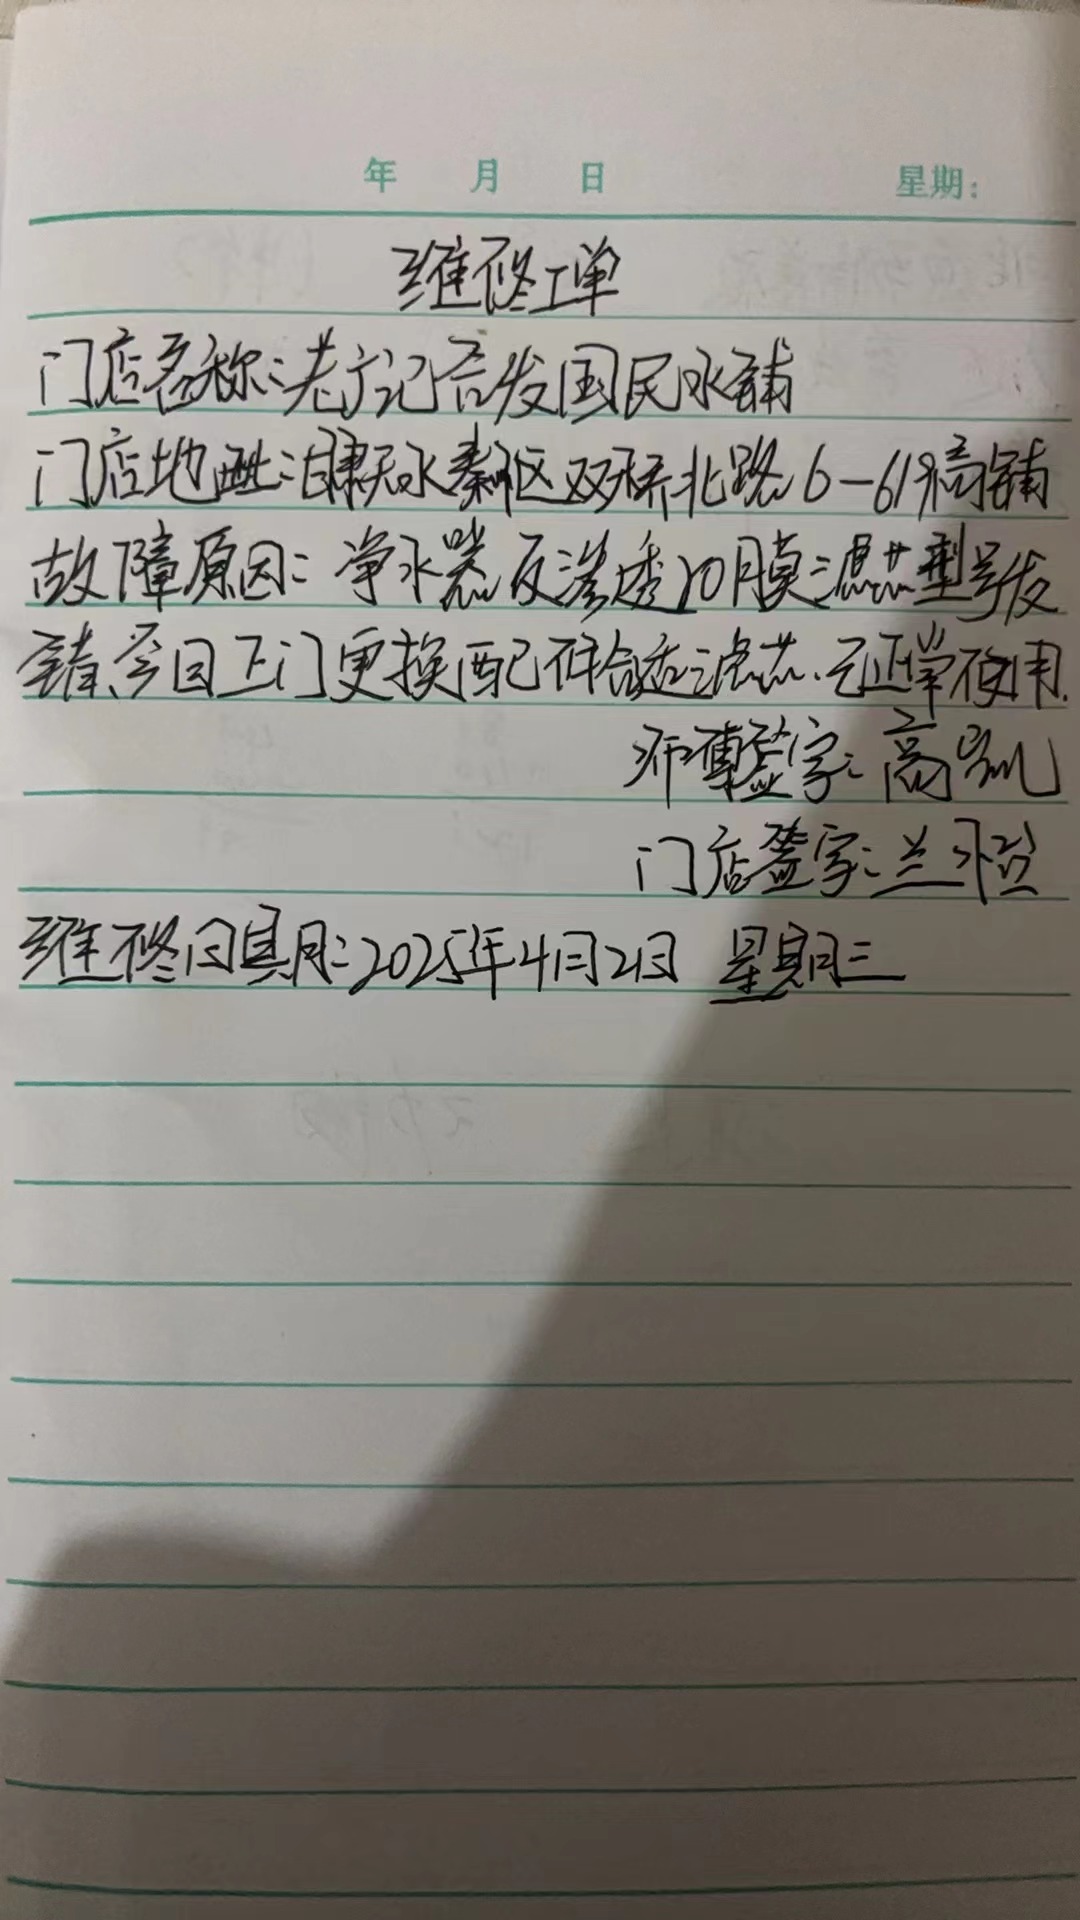 年 月 日 星期:
维修工单
门店名称:老广记合发国民冰铺
门店地址:甘肃天水秦州区双桥北路6-619商铺
故障原因:净水器反渗透RO膜滤芯型号发
错,今日上门更换配件合适滤芯.已正常使用.
师傅签字:高凯
门店签字:兰
维修日期:2025年4月2日 星期三